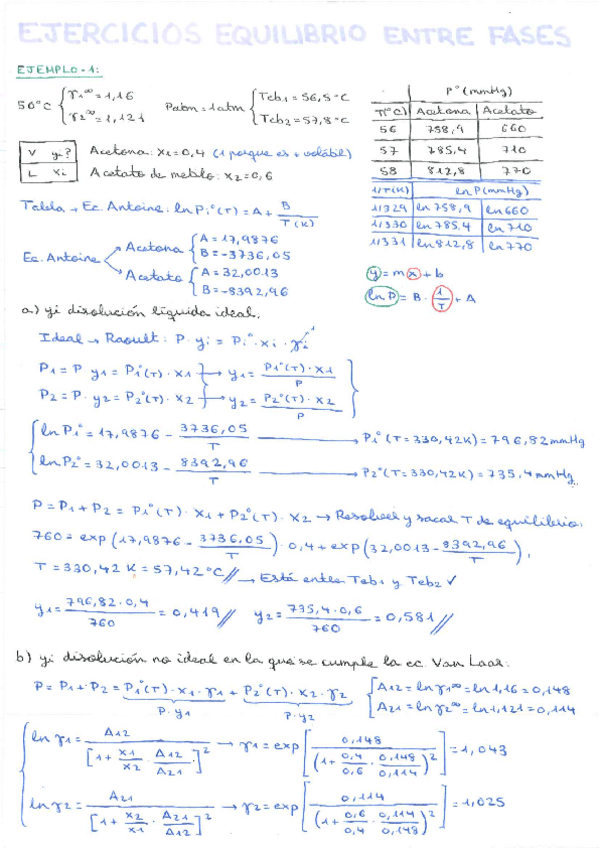 EJERCICIOS EQUILIBRIO ENTRE FASES
EJEMPLO-1:
50°C { γ1∞ = 1,16
γ2∞ = 1,121
Patm = 1 atm { Teb1 = 56,5°C
Teb2 = 57,8°C
P° (mmHg)
T(°C) Acetona Acetato
56 758,9 660
57 785,4 710
58 812,8 770
1/T(K) ln P(mmHg)
1/329 ln 758,9 ln 660
1/330 ln 785,4 ln 710
1/331 ln 812,8 ln 770
V yi?
L xi
Acetona: x1 = 0,4 (1 porque es + volátil)
Acetato de metilo: x2 = 0,6
Tabla → Ec. Antoine: ln Pi°(T) = A + B / T(K)
Ec. Antoine
Acetona { A = 17,9876
B = -3736,05
Acetato { A = 32,0013
B = -8392,96
y = m x + b
ln P = B · 1/T + A
a) yi disolución líquida ideal.
Ideal → Raoult: P · yi = Pi° · xi · γi 1
P1 = P · y1 = P1°(T) · x1 → y1 = P1°(T) · x1 / P
P2 = P · y2 = P2°(T) · x2 → y2 = P2°(T) · x2 / P
ln P1° = 17,9876 - 3736,05 / T → P1°(T = 330,42K) = 796,82 mmHg
ln P2° = 32,0013 - 8392,96 / T → P2°(T = 330,42K) = 735,4 mmHg
P = P1 + P2 = P1°(T) · x1 + P2°(T) · x2 → Resolver y sacar T de equilibrio:
760 = exp (17,9876 - 3736,05 / T) · 0,4 + exp (32,0013 - 8392,96 / T).
T = 330,42 K = 57,42°C // → Está entre Teb1 y Teb2 ✓
y1 = 796,82 · 0,4 / 760 = 0,419 // y2 = 735,4 · 0,6 / 760 = 0,581 //
b) yi disolución no ideal en la que se cumple la ec. Van Laar:
P = P1 + P2 = P1°(T) · x1 · γ1 + P2°(T) · x2 · γ2
P · y1 P · y2
A12 = ln γ1∞ = ln 1,16 = 0,148
A21 = ln γ2∞ = ln 1,121 = 0,114
ln γ1 = A12 / [1 + x1/x2 · A12/A21]² → γ1 = exp [0,148 / (1 + 0,4/0,6 · 0,148/0,114)²] = 1,043
ln γ2 = A21 / [1 + x2/x1 · A21/A12]² → γ2 = exp [0,114 / (1 + 0,6/0,4 · 0,114/0,148)²] = 1,025